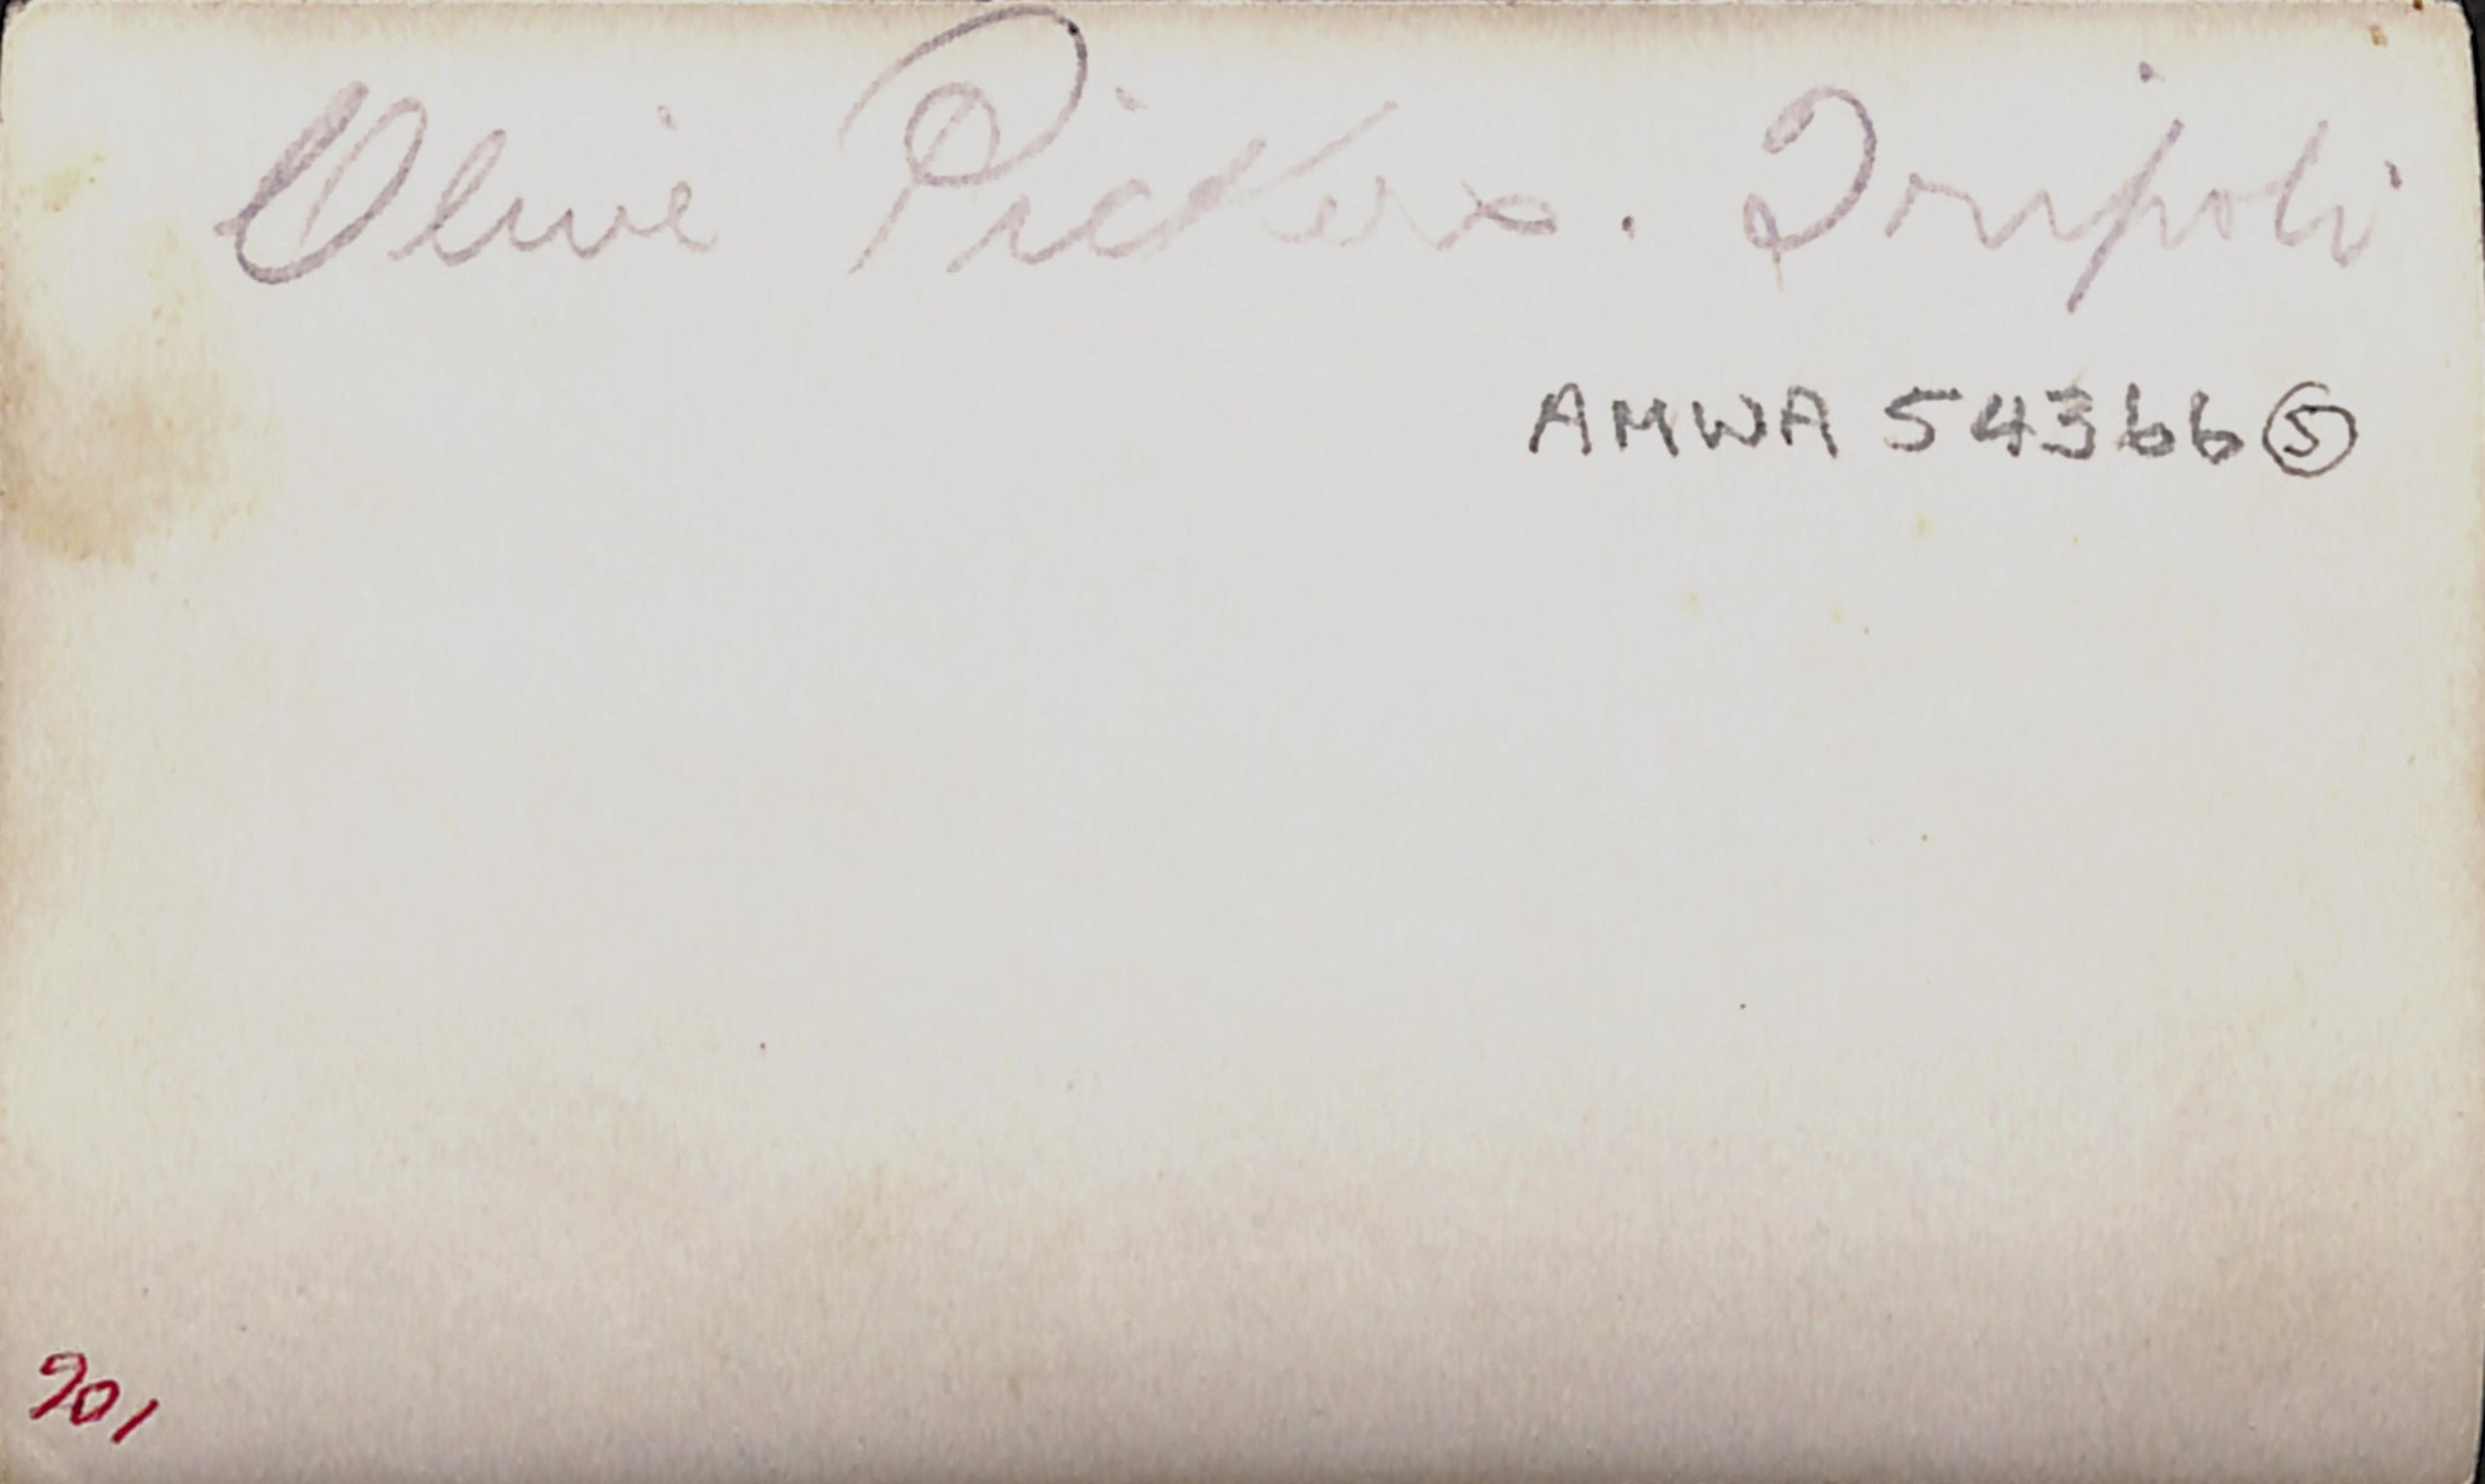 Olive Pickers. Tripoli
AMWA 54366 ⑤
901